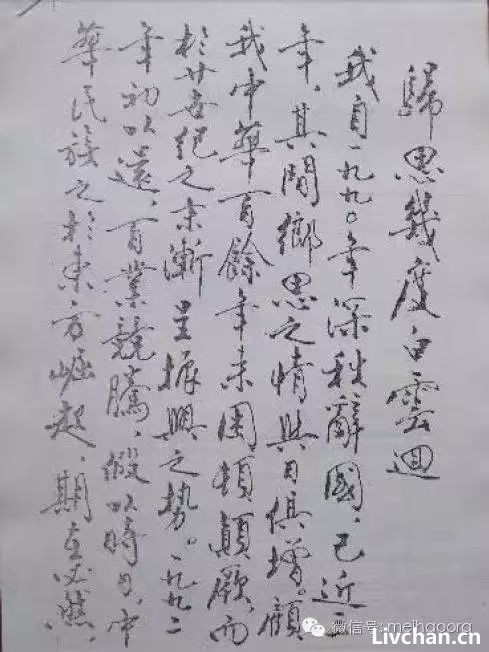 歸思幾度白雲迴
我自一九九〇年深秋辭國,已近二
年,其間鄉思之情與日俱增。顧
我中華百餘年來困頓顛蹶,而
於廿世紀之末漸呈振興之勢。一九九二
年初以還,百業競騰,假以時日,中
華民族之於東方崛起,期在必然,
微信号:meihaoorg
Livchan.cn